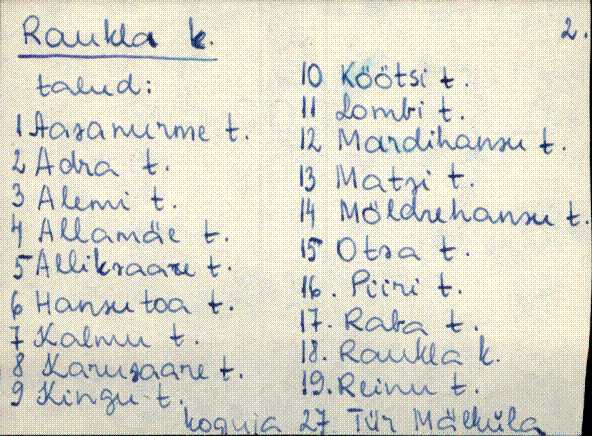 Raukla k.
2.
talud:
1 Aasanurme t.
2 Adra t.
3 Alemi t.
4 Allamäe t.
5 Alliksaare t.
6 Hansutoa t.
7 Kalmu t.
8 Karusaare t.
9 Kingu t.
10 Köötsi t.
11 Lombi t.
12 Mardihansu t.
13 Matsi t.
14 Möldrehansu t.
15 Otsa t.
16. Piiri t.
17. Raba t.
18. Raukla k.
19. Reinu t.
koguja 27. Tür Mäeküla